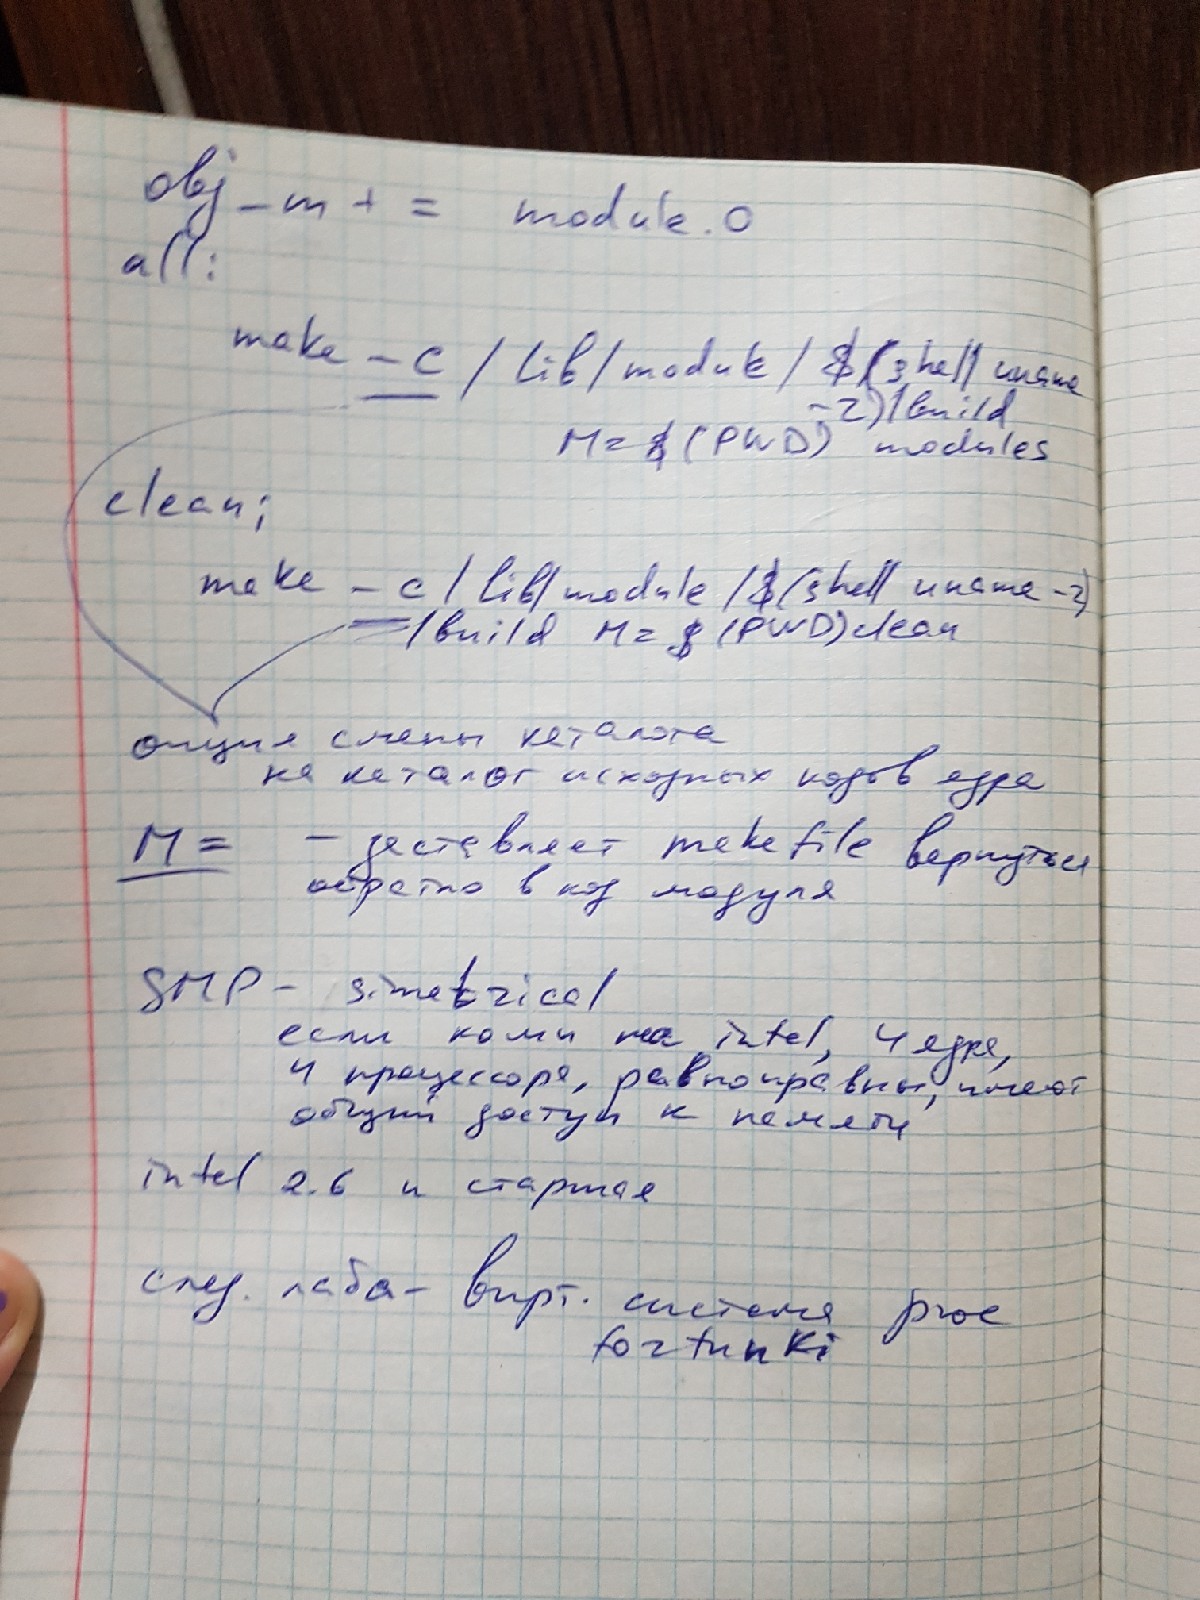 obj_m + = module.o
all:
make -C /lib/module/$(shell uname
-r)/build
M=$(PWD) modules
clean:
make -C /lib/module/$(shell uname -r)
/build M=$(PWD) clean
опция смены каталога
на каталог исходных кодов ядра
M= - заставляет makefile вернуться
обратно в код модуля
SMP - simetrical
если комп на intel, 4 ядра,
4 процессора, равноправны, имеют
общий доступ к памяти
intel 2.6 и старшая
след. лаба - вирт. система proc
fortunki